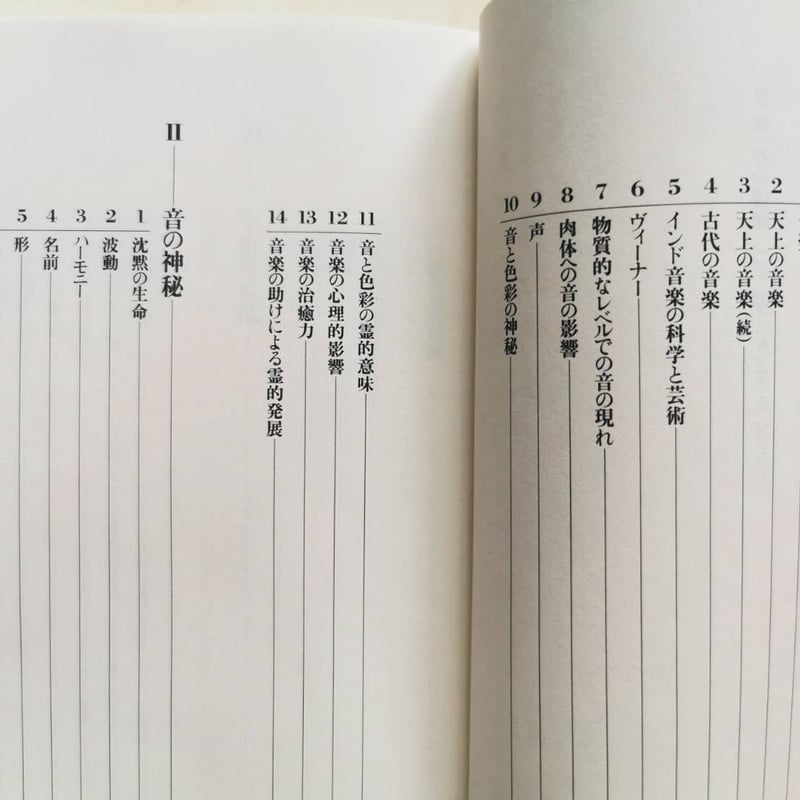 2 天上の音楽
3 天上の音楽(続)
4 古代の音楽
5 インド音楽の科学と芸術
6 ヴィーナー
7 物質的なレベルでの音の現れ
8 肉体への音の影響
9 声
10 音と色彩の神秘
11 音と色彩の霊的意味
12 音楽の心理的影響
13 音楽の治癒力
14 音楽の助けによる霊的発展
II 音の神秘
1 沈黙の生命
2 波動
3 ハーモニー
4 名前
5 形